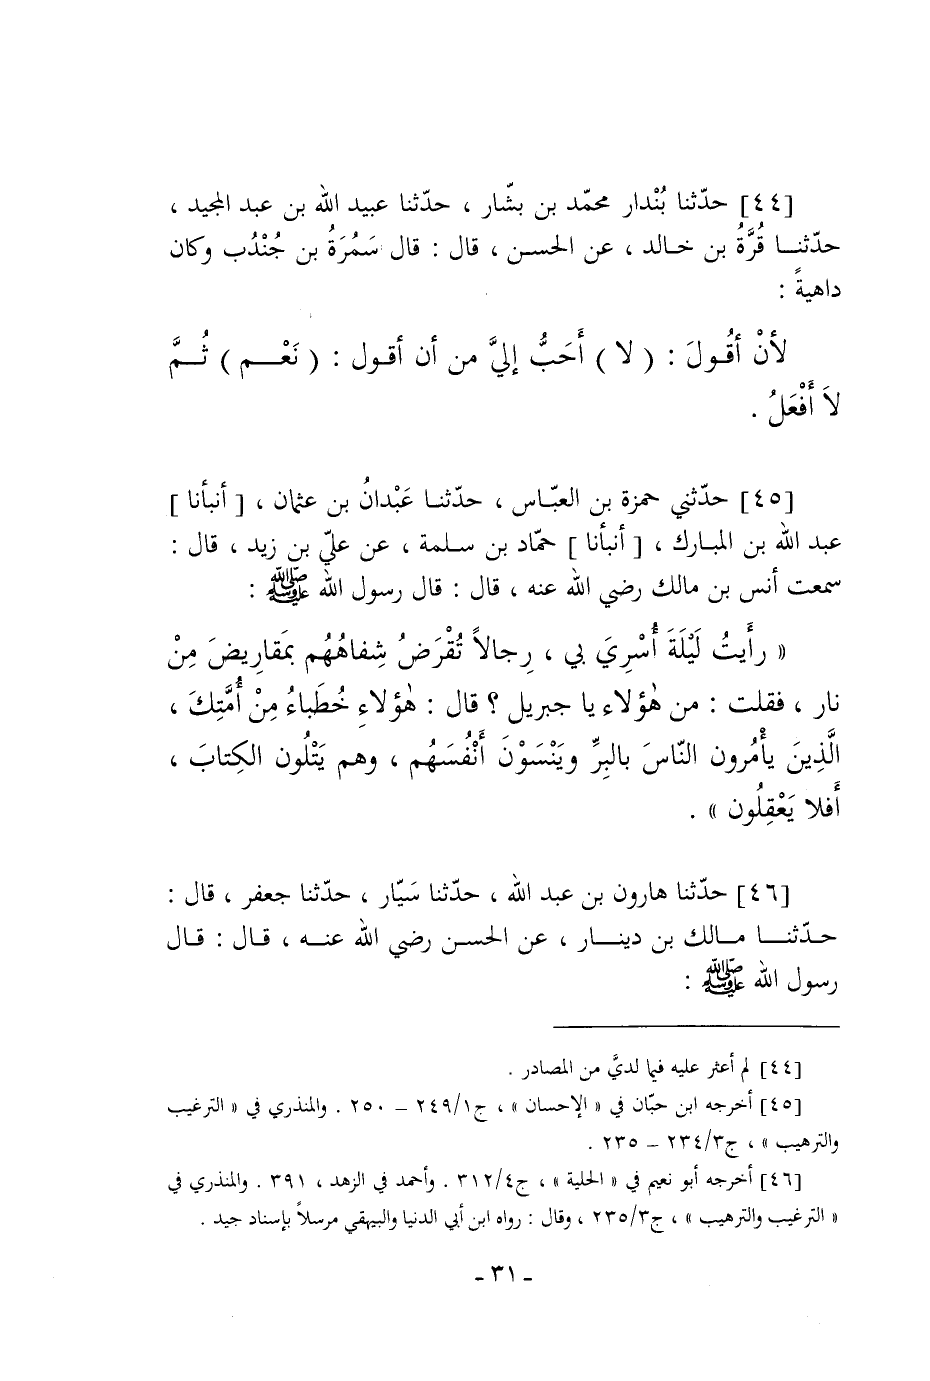 [٤٤] حدّثنا بُنْدار محمّد بن بشّار ، حدّثنا عبيد الله بن عبد المجيد ،
حدّثنـا قُرَّةُ بن خـالد ، عن الحسـن ، قال : قال سَمُرَةُ بن جُنْدُب وكان
داهيةً :
لأنْ أقُولَ : ( لا ) أَحَبُّ إليَّ من أن أقول : ( نَعْـم ) ثُـمَّ
لاَ أَفْعَلُ .
[٤٥] حدّثني حمزة بن العبّـاس ، حدّثنـا عَبْدانُ بن عثمان ، [ أنبأنا ]
عبد الله بن المبـارك ، [ أنبأنا ] حمّاد بن سـلمة ، عن عليّ بن زيد ، قال :
سمعت أنس بن مالك رضي الله عنه ، قال : قال رسول الله ﷺ :
« رأَيتُ لَيْلَةَ أُسْرِيَ بي ، رِجالاً تُقْرَضُ شِفاهُهُم بمَقارِيضَ مِنْ
نار ، فقلت : من هٰؤلاء يا جبريل ؟ قال : هٰؤلاءِ خُطَباءُ مِنْ أُمَّتِكَ ،
الَّذِينَ يأْمُرون النّاسَ بالبِرِّ ويَنْسَوْنَ أَنْفُسَهُم ، وهم يَتْلُون الكِتابَ ،
أَفلا يَعْقِلُون » .
[٤٦] حدّثنا هارون بن عبد الله ، حدّثنا سَيّار ، حدّثنا جعفر ، قال :
حـدّثنـا مـالك بن دينـار ، عن الحسن رضي الله عنـه ، قـال : قـال
رسول الله ﷺ :
[٤٤] لم أعثر عليه فيما لديَّ من المصادر .
[٤٥] أخرجه ابن حبّان في « الإحسان » ، ج١/٢٤٩ – ٢٥٠ . والمنذري في « الترغيب
والترهيب » ، ج٣/٢٣٤ – ٢٣٥ .
[٤٦] أخرجه أبو نعيم في « الحلية » ، ج٤/٣١٢ . وأحمد في الزهد ، ٣٩١ . والمنذري في
« الترغيب والترهيب » ، ج٣/٢٣٥ ، وقال : رواه ابن أبي الدنيا والبيهقي مرسلاً بإسناد جيد .
- ٣١ -